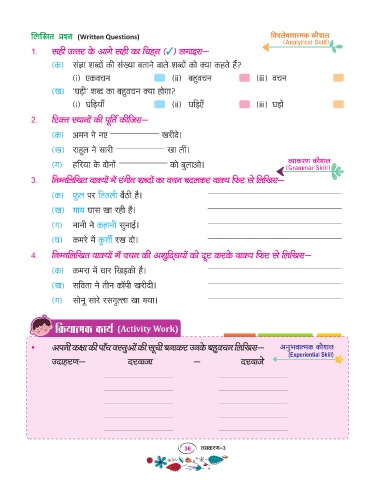 लिखित प्रश्न (Written Questions)
विश्लेषणात्मक कौशल
(Analytical Skill)
1. सही उत्तर के आगे सही का चिह्न (✓) लगाइए—
(क) संज्ञा शब्दों की संख्या बताने वाले शब्दों को क्या कहते हैं?
(i) एकवचन (ii) बहुवचन (iii) वचन
(ख) 'घड़ी' शब्द का बहुवचन क्या होगा?
(i) घड़ियाँ (ii) घड़िएँ (iii) घड़ों
2. रिक्त स्थानों की पूर्ति कीजिए—
(क) अमन ने नए ________ खरीदे।
(ख) राहुल ने सारी ________ खा लीं।
(ग) हरिया के दोनों ________ को बुलाओ।
व्याकरण कौशल
(Grammar Skill)
3. निम्नलिखित वाक्यों में रंगीन शब्दों का वचन बदलकर वाक्य फिर से लिखिए—
(क) फूल पर तितली बैठी है।
(ख) गाय घास खा रही है।
(ग) नानी ने कहानी सुनाई।
(घ) कमरे में कुर्सी रख दो।
4. निम्नलिखित वाक्यों में वचन की अशुद्धियों को दूर करके वाक्य फिर से लिखिए—
(क) कमरा में चार खिड़की है।
(ख) सविता ने तीन कॉपी खरीदी।
(ग) सोनू सारे रसगुल्ला खा गया।
क्रियात्मक कार्य (Activity Work)
• अपनी कक्षा की पाँच वस्तुओं की सूची बनाकर उनके बहुवचन लिखिए—
अनुभवात्मक कौशल
(Experiential Skill)
उदाहरण— दरवाजा — दरवाजे
36 व्याकरण-3